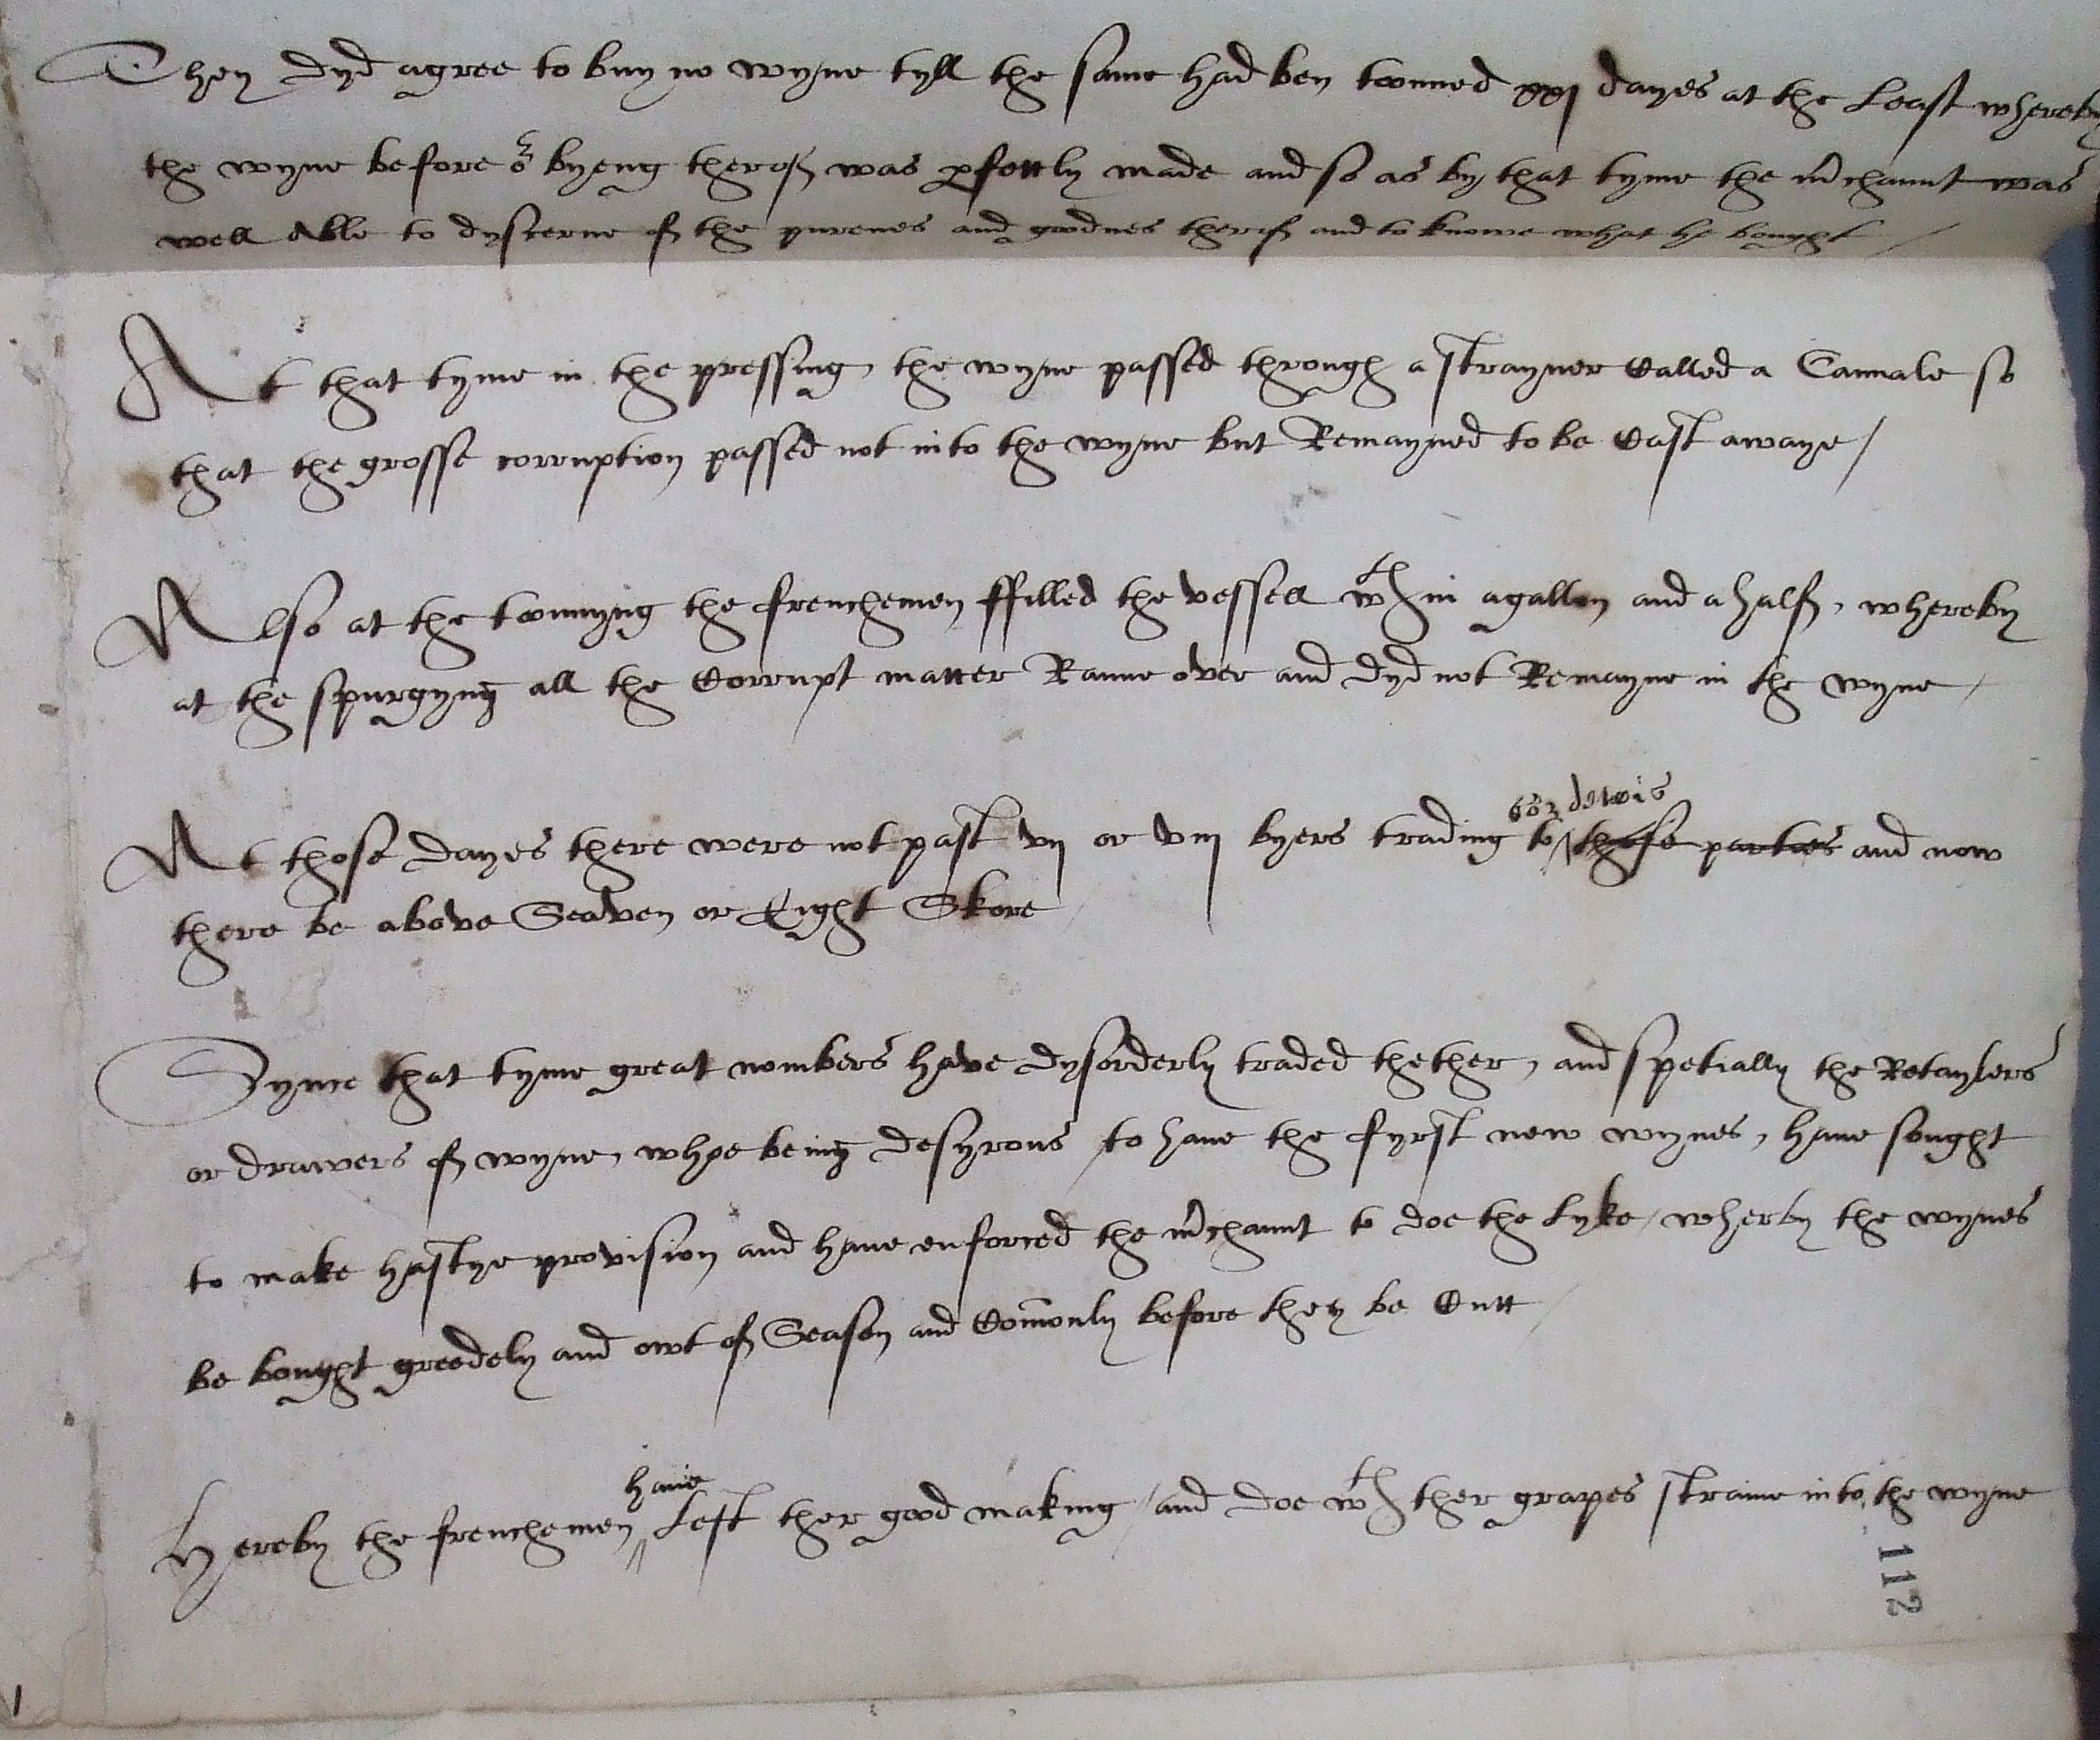 They dyd agree to buy no wyne tyll the same had ben tonned xxj dayes at the Least whereby
the wyne before byeng therof was pfettly made and so as by that tyme the mchaunt was
well Able to dyscerne of the purenes and goodnes therof and to knowe what he bought /
At that tyme in the pressing, the wyne passed through a strayner Called a Cannale so
that the grosse corruption passed not into the wyne but Remayned to be Cast awaye /
Also at the tonnyng the frenchemen ffilled the vessell wth in a gallon and a half, whereby
at the spurgyng all the Corrupt matter Ranne over and dyd not Remayne in the wyne /
At those dayes there were not past vij or viij byers trading to those parties and now
there be above Seaven or Eight Skore /
Synce that tyme great nombers have dysorderly traded thether, and spetially the Retaylers
or drawers of wyne, whoe being desyrous to have the fyrst new wynes, have sought
to make hastye provision and have enforced the mchaunt to doe the Lyke / wherby the wynes
be bought greedely and owt of Season and Comonly before they be Cutt /
have
Hereby the frenchemen Left ther good making / and doe wth ther grapes straine into the wyne
112